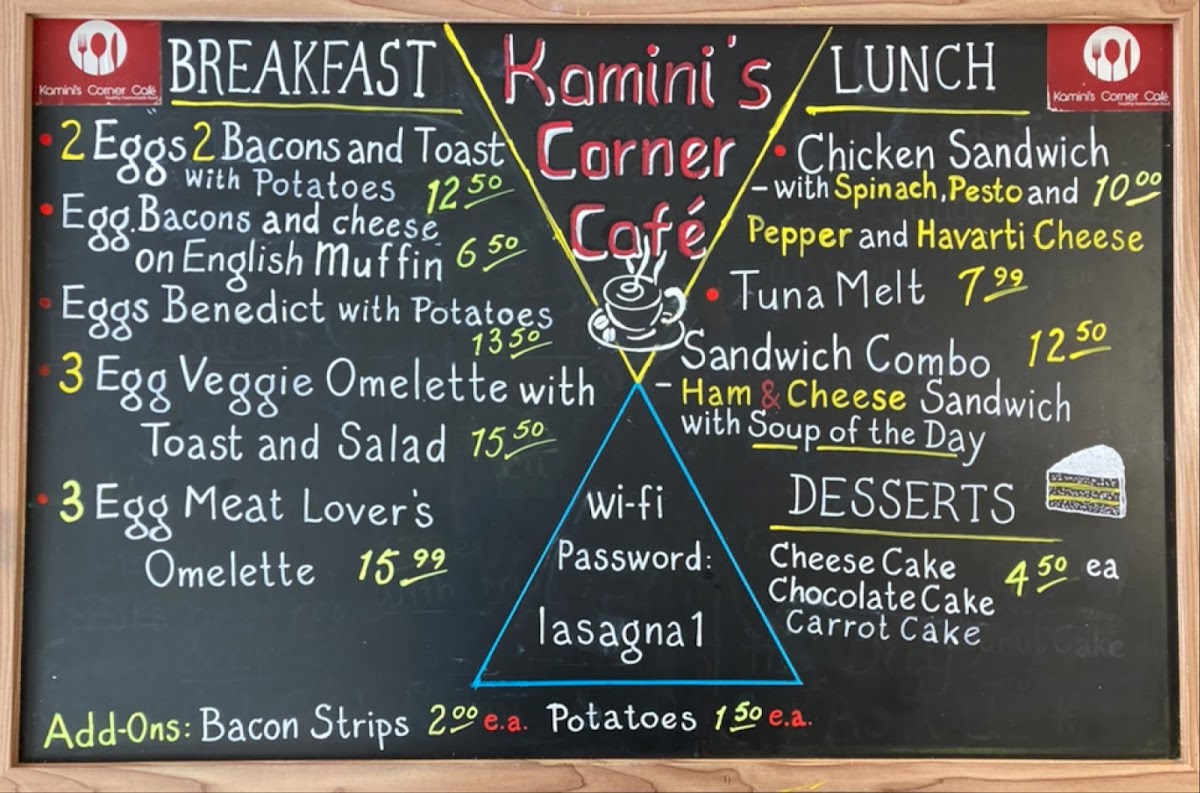 Kamini's Corner Café
healthy homemade food
BREAKFAST
• 2 Eggs 2 Bacons and Toast
with Potatoes 12.50
• Egg. Bacons and cheese
on English Muffin 6.50
• Eggs Benedict with Potatoes
13.50
• 3 Egg Veggie Omelette with
Toast and Salad 15.50
• 3 Egg Meat Lover's
Omelette 15.99
Kamini's
Corner
Café
wi-fi
Password:
lasagna1
Kamini's Corner Café
healthy homemade food
LUNCH
• Chicken Sandwich
- with Spinach, Pesto and 10.00
Pepper and Havarti Cheese
• Tuna Melt 7.99
Sandwich Combo 12.50
- Ham & Cheese Sandwich
with Soup of the Day
DESSERTS
Cheese Cake 4.50 ea
Chocolate Cake
Carrot Cake
Add-Ons: Bacon Strips 2.00 e.a. Potatoes 1.50 e.a.